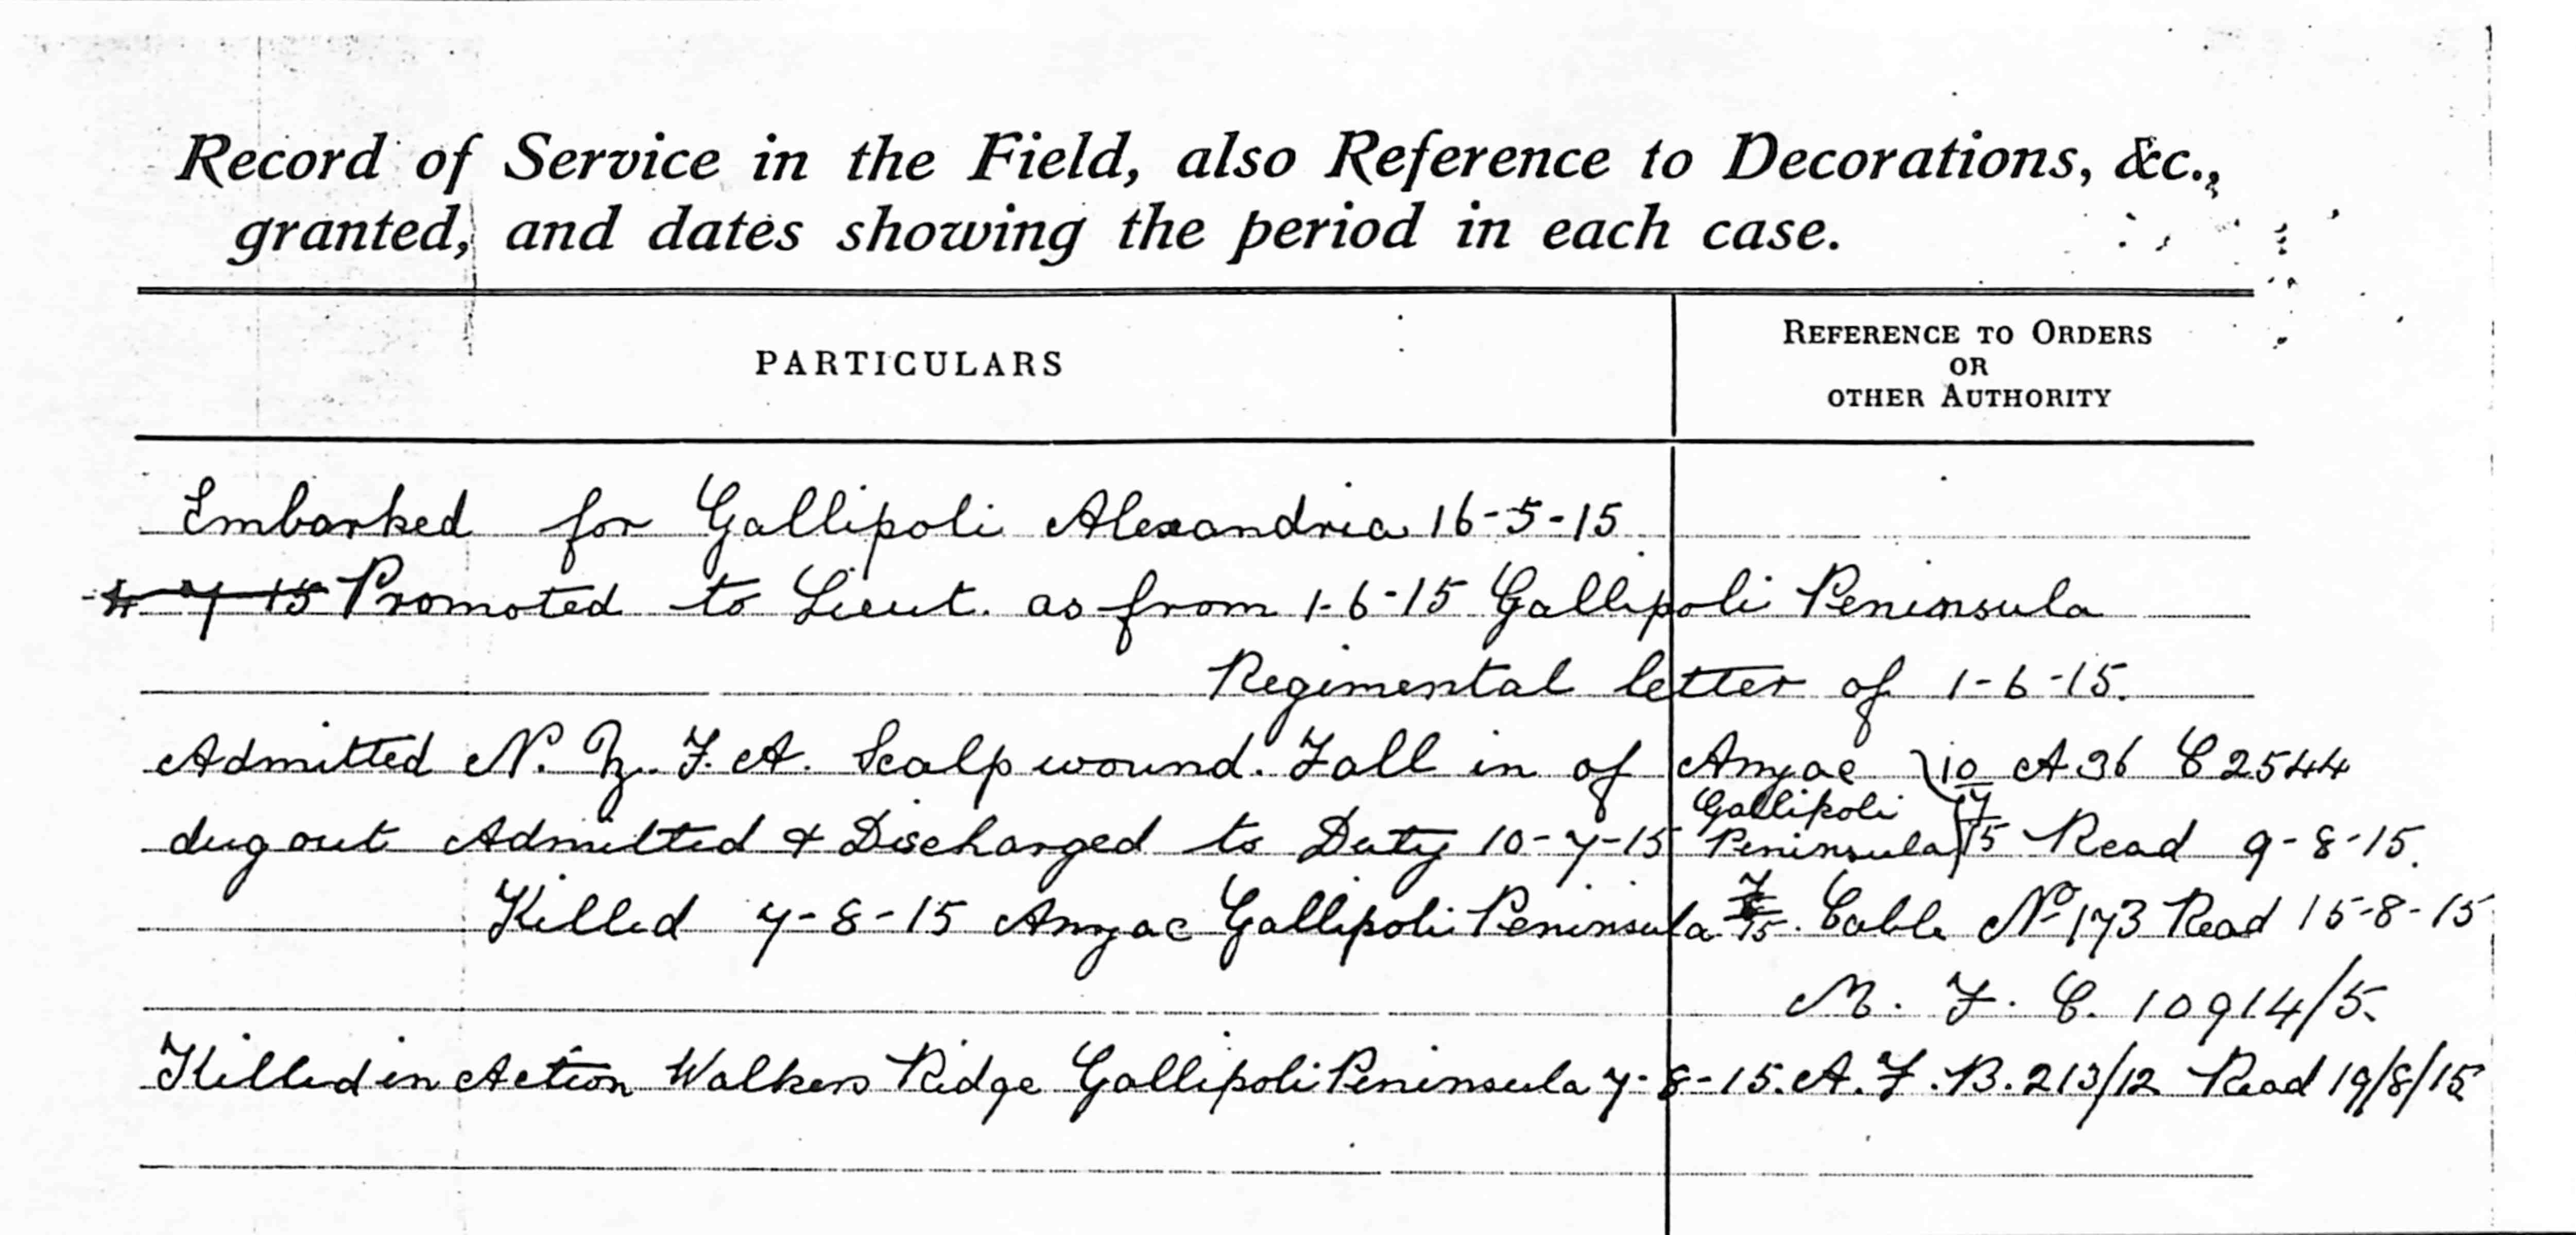 Record of Service in the Field, also Reference to Decorations, &c.,
granted, and dates showing the period in each case.
PARTICULARS
REFERENCE TO ORDERS
OR
OTHER AUTHORITY
Embarked for Gallipoli Alexandria 16-5-15
Promoted to Lieut. as from 1-6-15 Gallipoli Peninsula
Regimental letter of 1-6-15.
Admitted N. Z. F. A. Scalp wound. Fall in of Anzac 10 A36 C2544
Gallipoli 7
dug out Admitted & Discharged to Duty 10-7-15 Peninsula 15 Read 9-8-15.
Killed 7-8-15 Anzac Gallipoli Peninsula Cable No 173 Read 15-8-15
M. F. C. 10914/5.
Killed in Action Walkers Ridge Gallipoli Peninsula 7-8-15. A. F. B. 213/12 Read 19/8/15